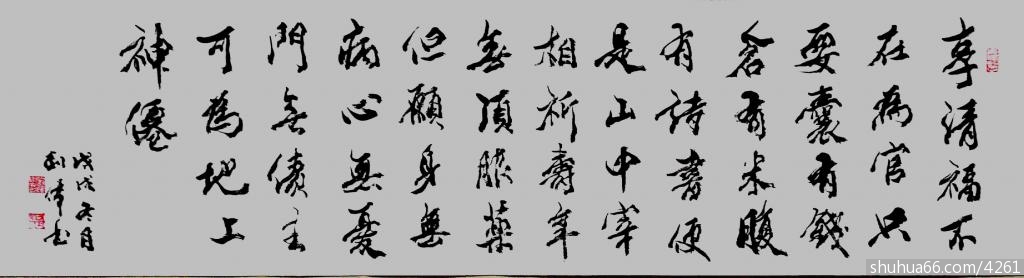 享清福不
在為官只
要囊有錢
倉有米腹
有詩書便
是山中宰
相祈壽年
無須服藥
但願身無
病心無憂
門無債主
可為地上
神僊
戊戌冬月
书
shuhua66.com/4261